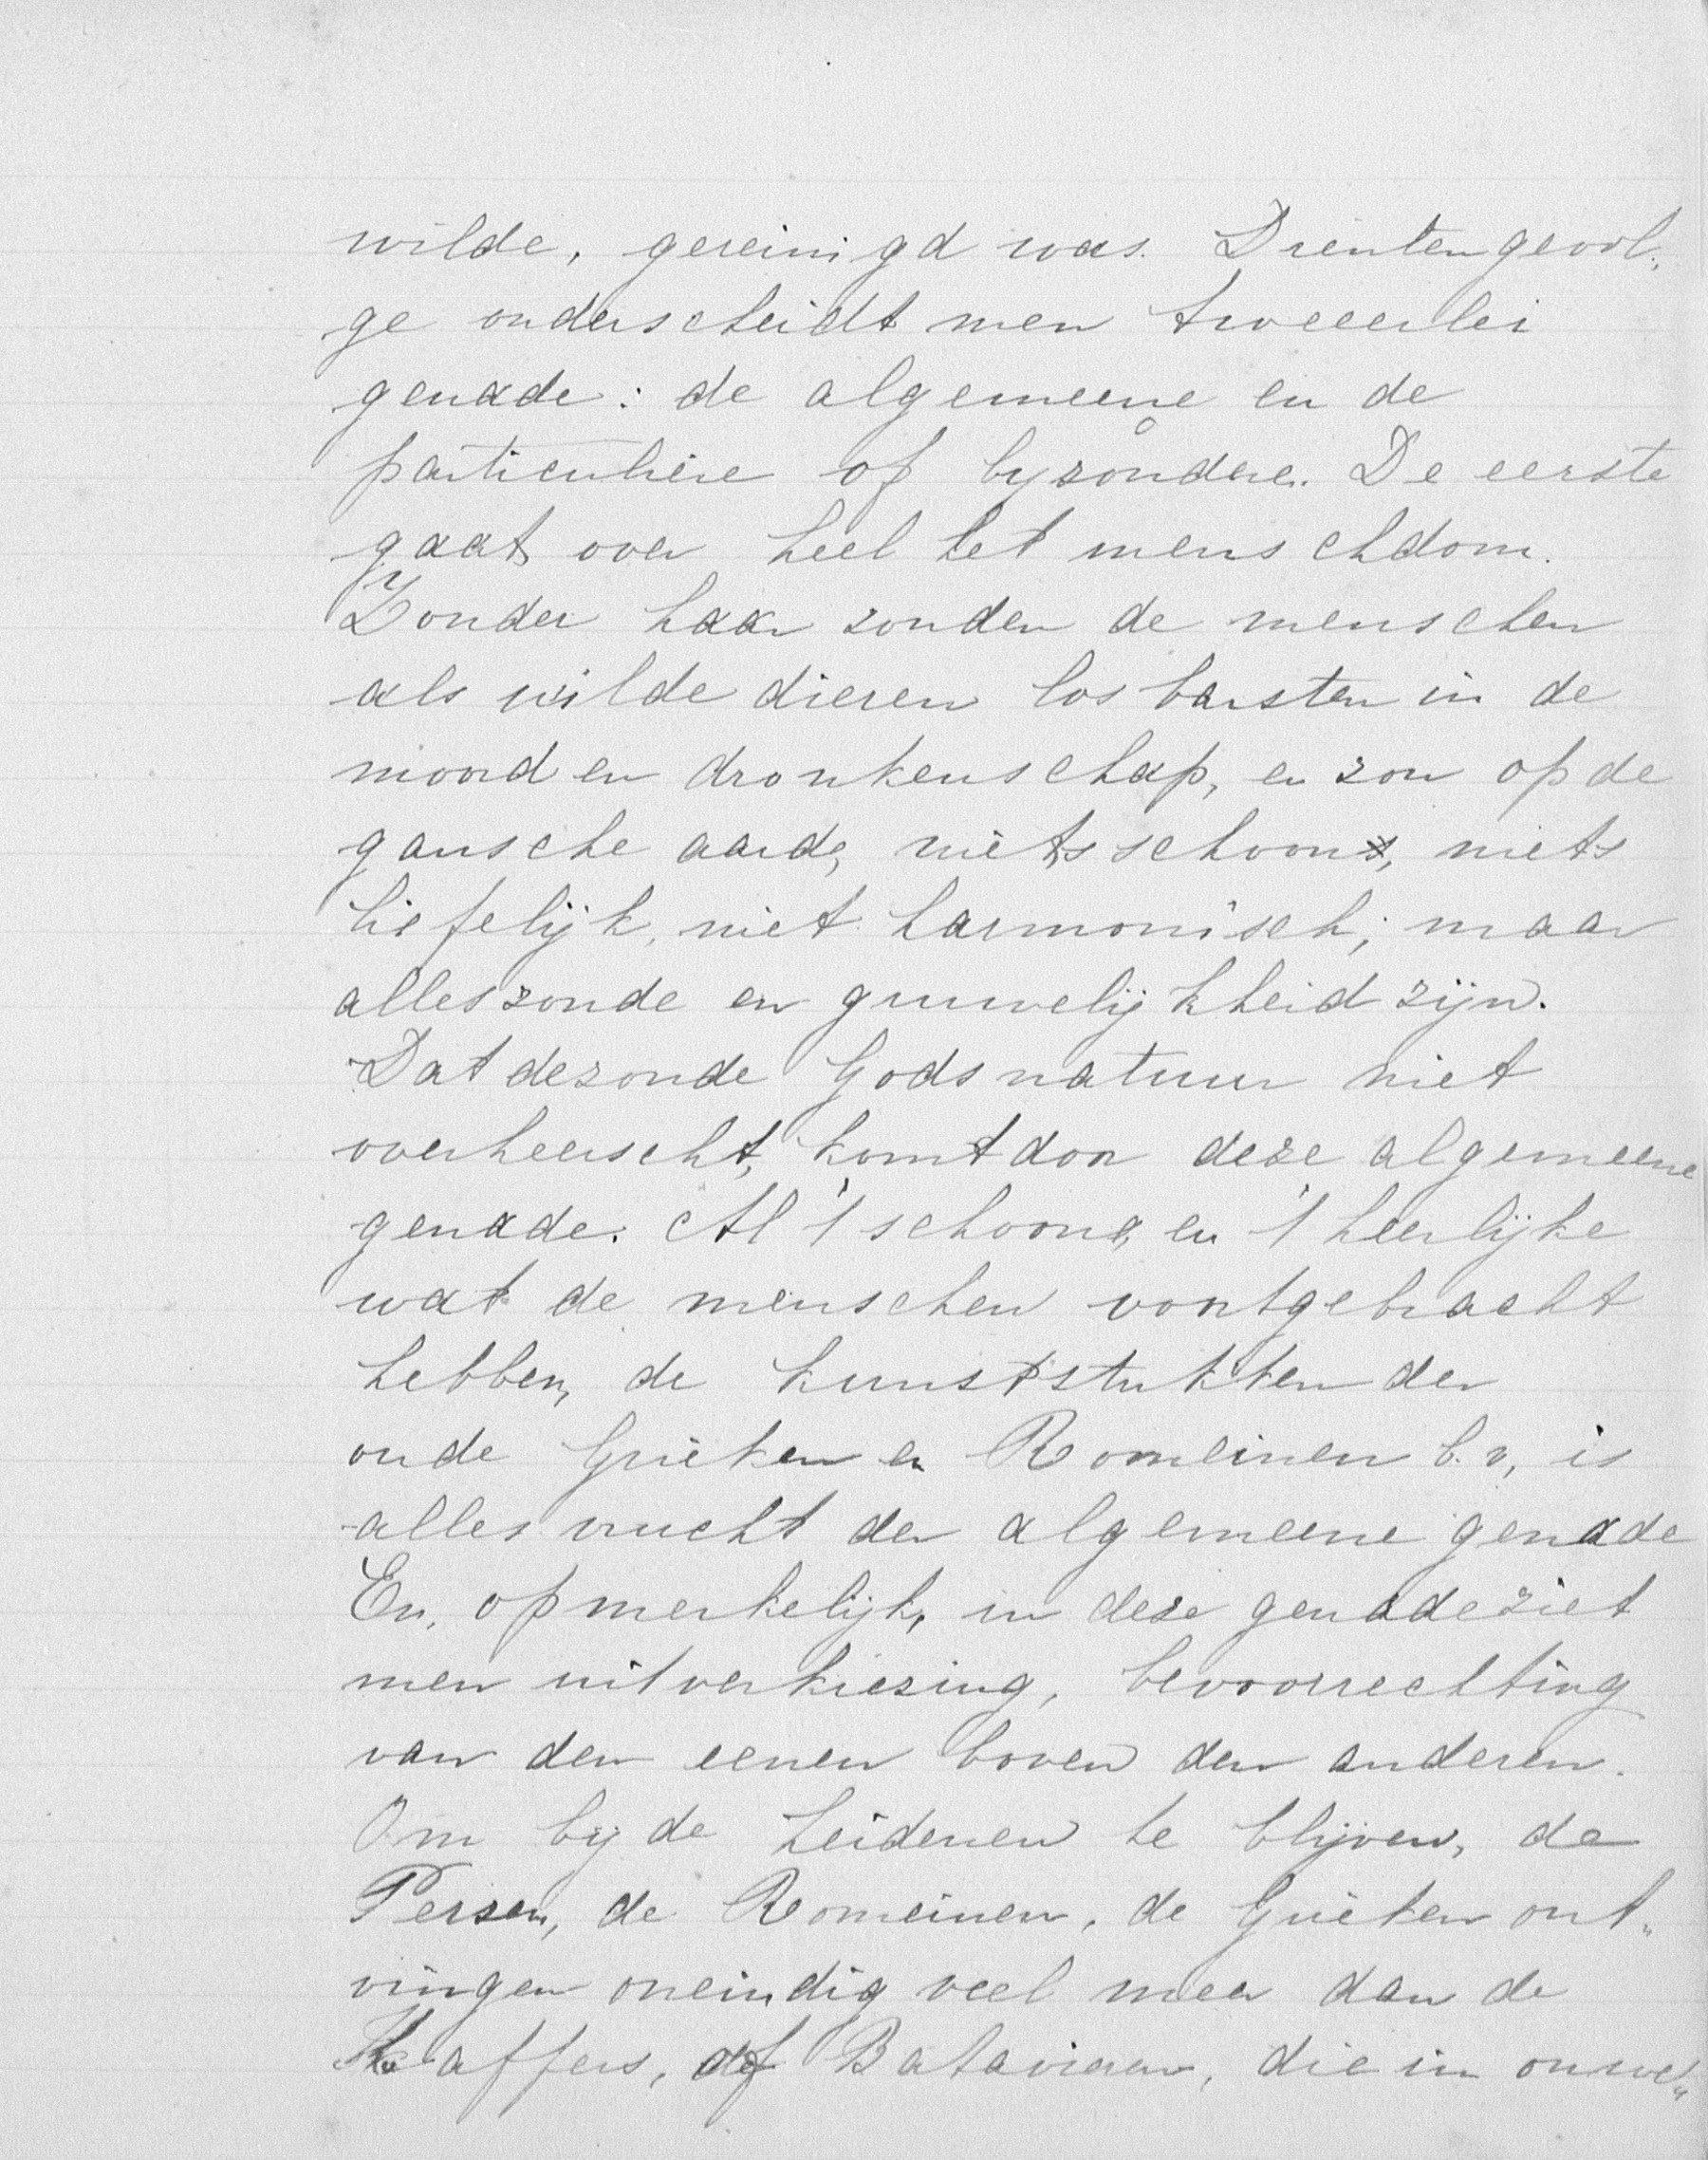 wilde, gereinigd was. Dientengevol„
ge onderscheidt men tweeerlei
genade: de algemeene en de
particuliere of byzondere. De eerste
gaat over heel het menschdom.
Zonder haar zouden de menschen
als wilde dieren losbarsten in de
moord en dronkenschap, en zou op de
gansche aarde, niets schoons, niets
liefelijk, niet harmonisch; maar
alles zonde en gruwelijkheid zijn.
Dat de zonde Gods natuur niet
overheerscht, komt door deze algemeene
genade. Al 't schoone, en 't heerlijke
wat de menschen voortgebracht
hebben, de kunststukken der
oude Grieken en Romeinen b.v, is
alles vrucht der algemeene genade
En, opmerkelijk, in deze genade ziet
men uitverkiezing, bevoorrechting
van den eenen boven den anderen.
Om by de Heidenen te blijven, de
Persen, de Romeinen, de Grieken ont„
vingen oneindig veel meer dan de
Kaffers, of Batavieren, die in onwe„